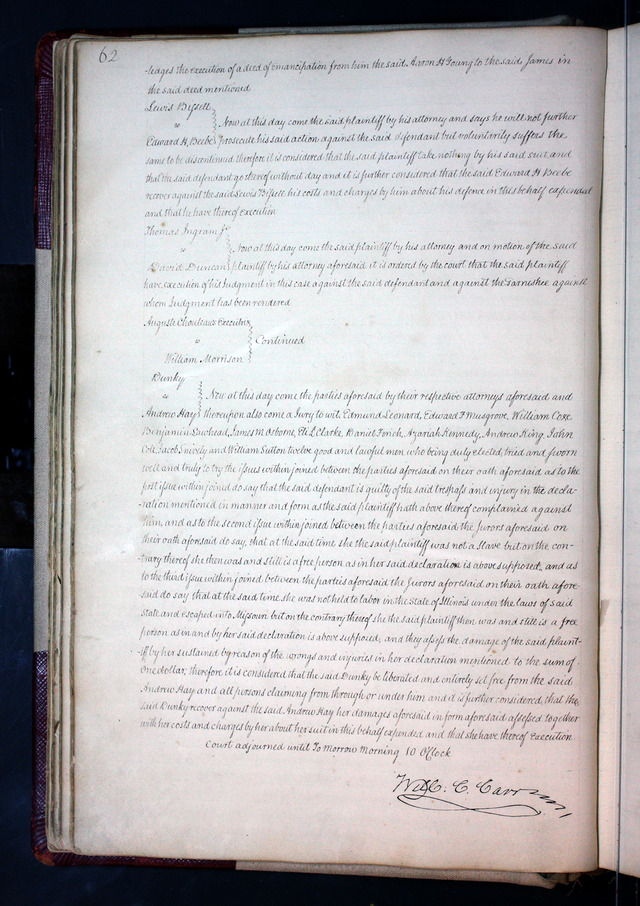 62
-ledges the execution of a deed of emancipation from him the said Aaron H Young to the said James in
the said deed mentioned
Lewis Bissell
vs
Now at this day come the said plaintiff by his attorney and says he will not further
Edward H. Beebe prosecute his said action against the said defendant but voluntarily suffers the
same to be discontinued therefore it is considered that the said plaintiff take nothing by his said suit and
that the said defendant go thereof without day and it is further considered that the said Edward H Beebe
recover against the said Lewis Bissell his costs and charges by him about his defence in this behalf expended
and that he have thereof execution
Thomas Ingram Jr
vs
Now at this day come the said plaintiff by his attorney and on motion of the said
David Duncan plaintiff by his attorney aforesaid it is ordered by the court that the said plaintiff
have execution of his Judgment in this case against the said defendant and against the Garnishee against
whom Judgment has been rendered
Auguste Chouteaus Executrx
vs
Continued
William Morrison
Dunky
vs
Now at this day come the parties aforesaid by their respective attorneys aforesaid and
Andrew Hay thereupon also come a Jury to wit, Edmund Leonard, Edward F Musgrove, William Coxe
Benjamin James M Osborne, Eli L Clarke, Daniel Azariah Kennedy, Andrew King John
Cole Jacob Snively and William Sutton twelve good and lawful men who being duly elected, tried and sworn
well and truly to try the issues within joined between the parties aforesaid on their oath aforesaid as to the
first issue within joined do say that the said defendant is guilty of the said trespass and injury in the decla-
-ration mentioned in manner and form as the said plaintiff hath above thereof complained against
him, and as to the second issue within joined between the parties aforesaid the Jurors aforesaid on
their oath aforesaid do say, that at the said time she the said plaintiff was not a slave but on the con-
trary thereof she then was and still is a free person as in her said declaration is above supposed, and as
to the third issue within joined between the parties aforesaid the Jurors aforesaid on their oath afore-
said do say that at the said time she was not held to labor in the State of Illinois under the laws of said
state and escaped into Missouri but on the contrary thereof she the said plaintiff then was and still is a free
person as in and by her said declaration is above supposed, and they assess the damage of the said plaint-
-iff by her sustained by reason of the wrongs and injuries in her declaration mentioned to the sum of
One dollar, therefore it is considered that the said Dunky be liberated and entirely set free from the said
Andrew Hay and all persons claiming from through or under him and it is further considered, that the
said Dunky recover against the said Andrew Hay her damages aforesaid in form aforesaid assessed together
with her costs and charges by her about her suit in this behalf expended and that she have thereof Execution
Court adjourned until To Morrow Morning 10 O'Clock
Wm. C. Carr